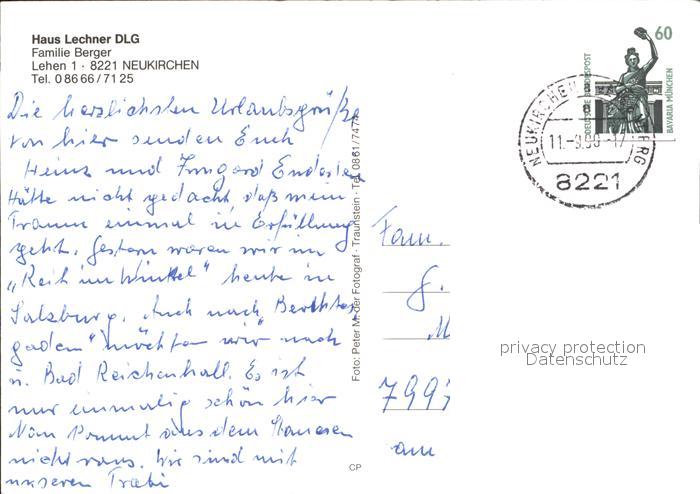 Haus Lechner DLG
Familie Berger
Lehen 1 · 8221 NEUKIRCHEN
Tel. 0 86 66 / 71 25
Die herzlichsten Urlaubsgrüße
von hier senden Euch
Heinz und Irmgard
Hätte nicht gedacht, daß mein
Traum einmal in Erfüllung
geht. Gestern waren wir in
„Reit im Winkel" heute in
Salzburg. Auch nach „Berchtes
gaden" möchten wir noch
u. Bad Reichenhall. Es ist
nur einmalig schön hier
Man kommt aus dem Staunen
nicht raus. Wir sind mit
unseren Trabi
Foto: Peter M. der Fotograf · Traunstein · Tel. 0861/7474
CP
60
DEUTSCHE BUNDESPOST
BAVARIA MÜNCHEN
NEUKIRCHEN
8221
Fam.
G.
M
799
am
privacy protection
Datenschutz